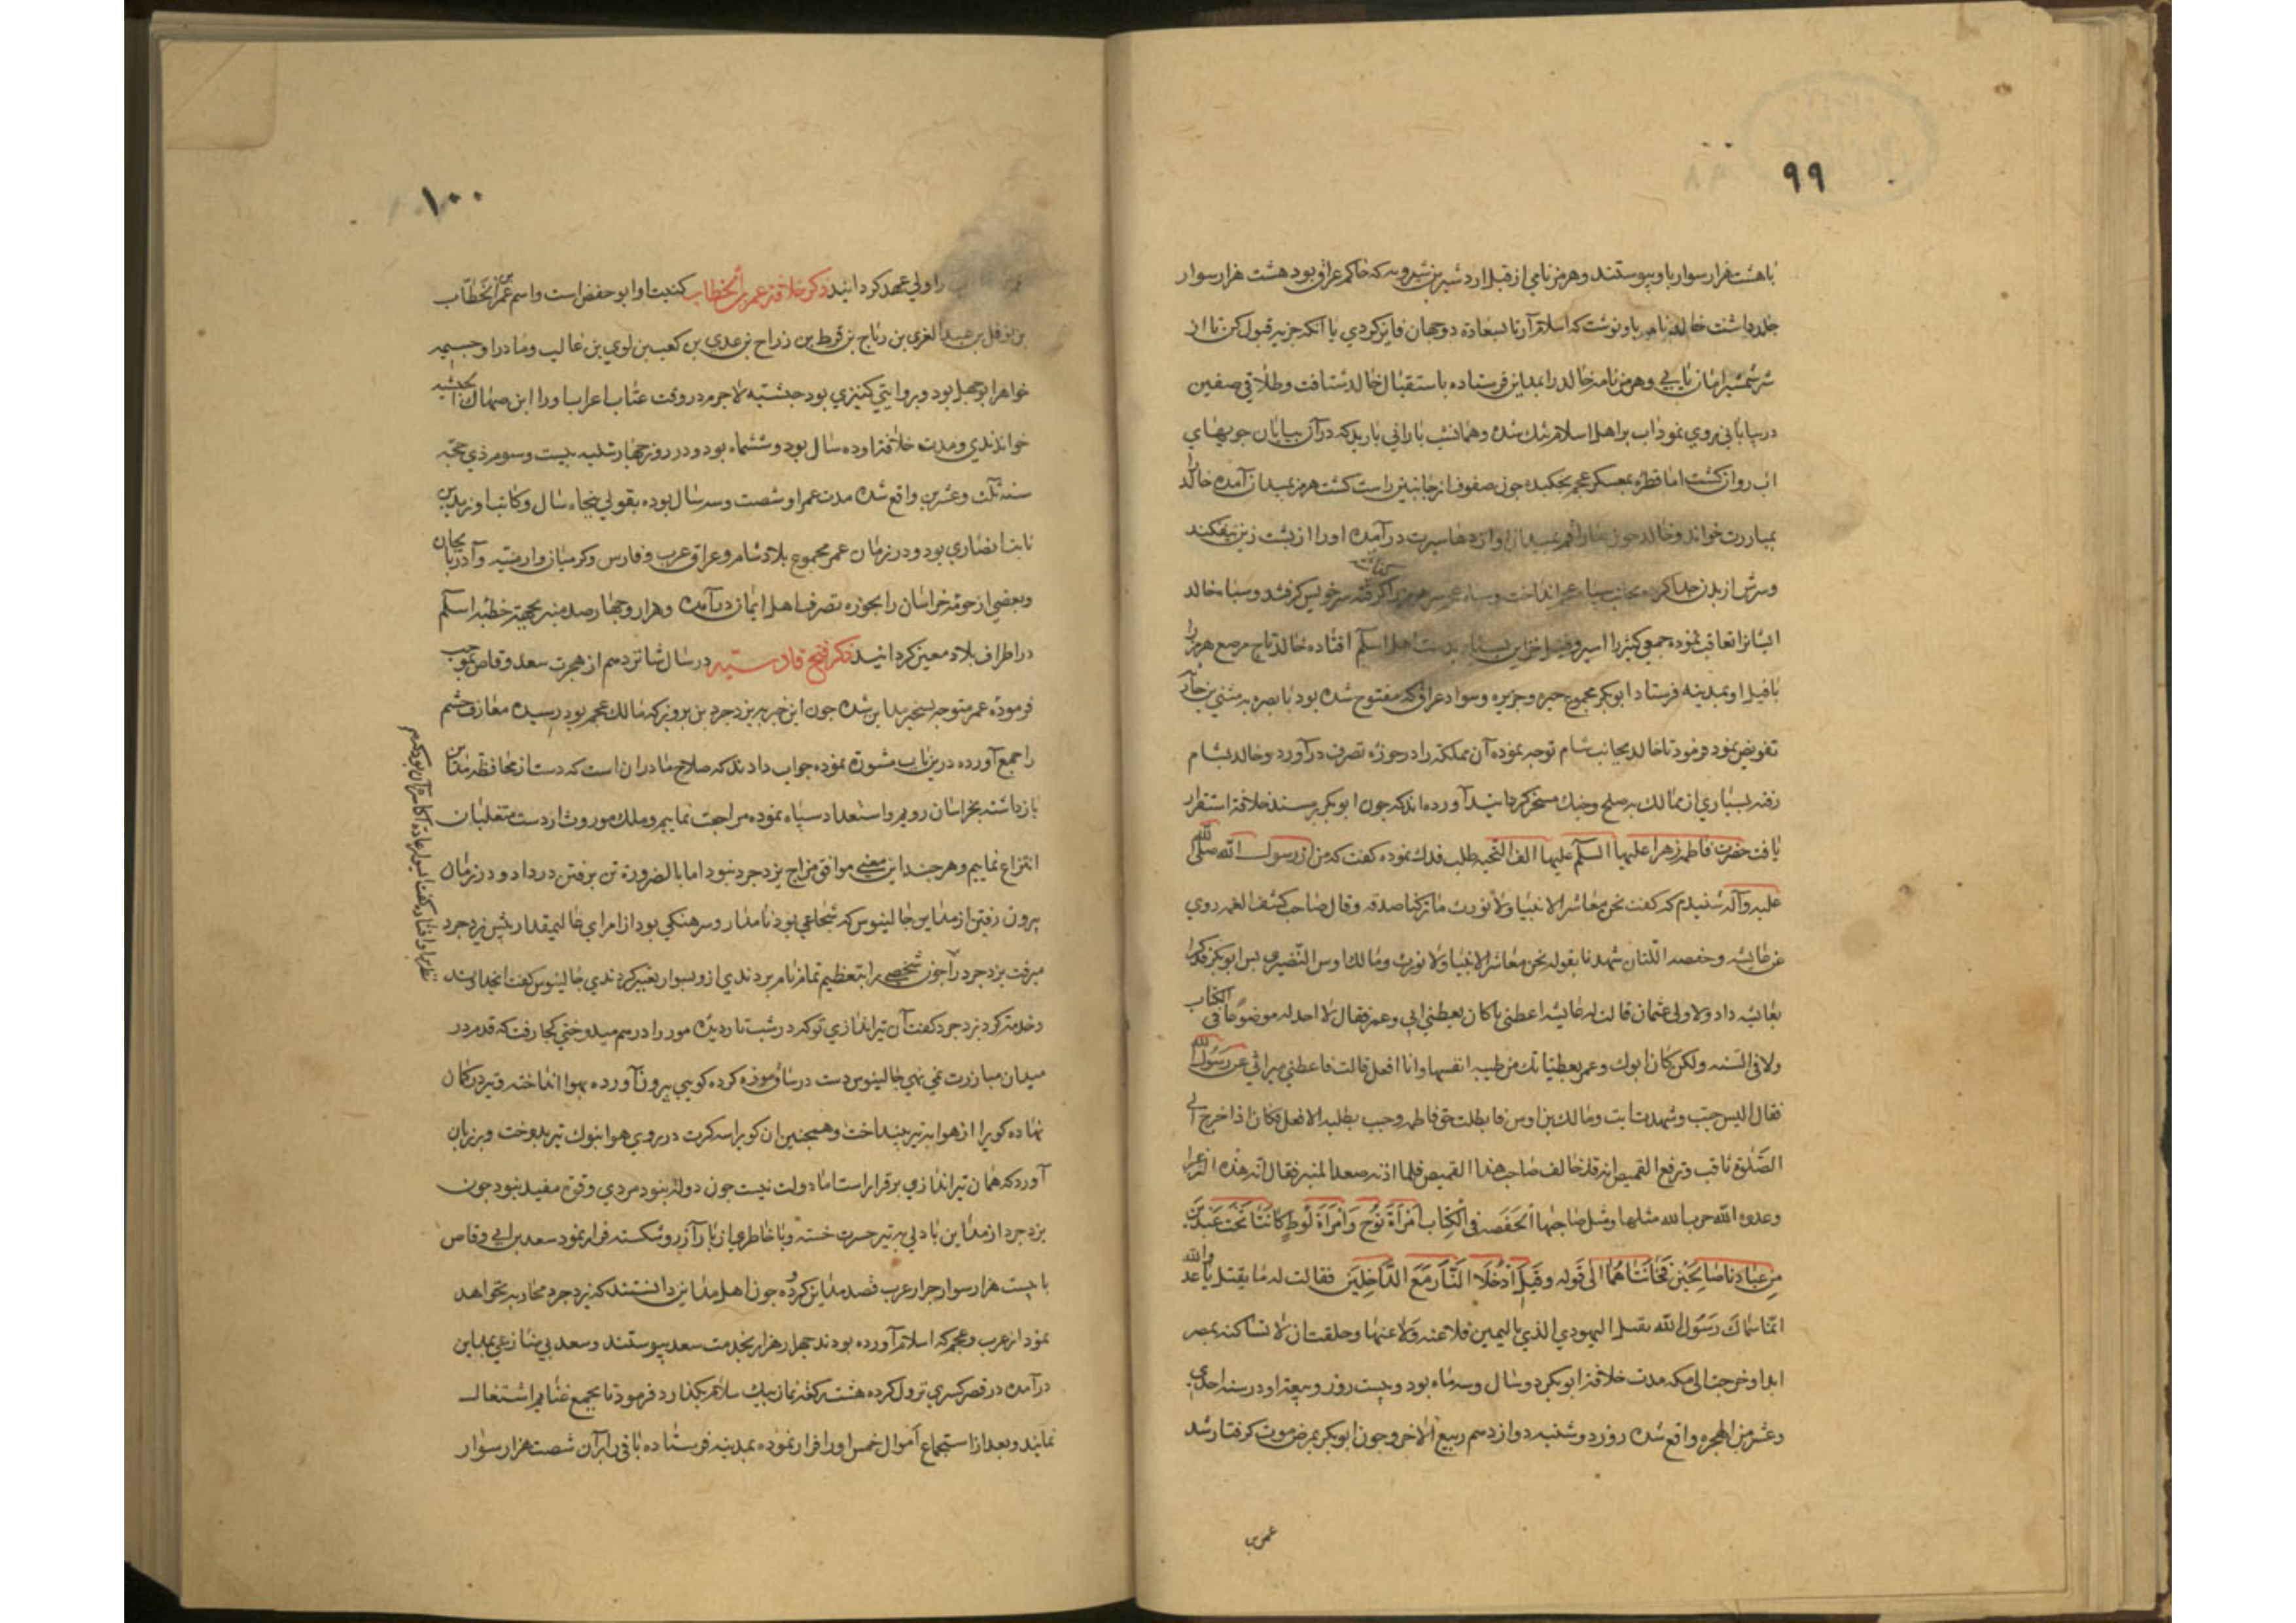 ٩٩
با هشت هزار سوار باو پیوستند و هرمز نامی از قبل اردشیر بن شیرویه که حاکم عراق بود هشت هزار سوار
جلد داشت خالد نامه باو نوشت که اسلام آر تا بسعادة دوجهان فایز کردی یا آنکه جزیه قبول کن تا از
سر شمشیر امان یابی و هرمز نامه خالد را بمداین فرستاده باستقبال خالد شتافت و طلاقی صفین
در بیابانی روی نمود اب بر اهل اسلام تنك شده و همانشب بارانی بارید که در آن بیابان جویهای
اب روان کشت اما قطره بمعسکر عجم نچکیده چون صفوف از جانبین راست کشت هرمز بمیدان آمده خالد را
بمبارزت خواند و خالد چون مار ارقم بمیدان او اژدها سیرت در آمده او را از پشت زین بیفکند
و سرش از بدن جدا کرده بجانب سپاه عجم انداخت و سپاه سر خویش کرفتند و سپاه خالد
ایشانرا تعاقب نموده جمعی کثیر را اسیر و بدست اهل اسلم افتاده خالد تاج مرصع هرمز را
با فیل او بمدینه فرستاد ابوبکر مجموع حیره و جزیره و سواد عراق که مفتوح شده بود با بصره به مثنی بن حارثه
تفویض نمود و فرمود تا خالد بجانب شام توجه نموده آن مملکة را در حوزه تصرف در آورد و خالد بشام
رفته بسیاری از ممالك به صلح و جنك مسخر کردانید آورده اند که چون ابوبکر بر مسند خلافة استقرار
یافت حضرت فاطمه زهرا علیها السلم علیها الف التحیه طلب فدك نموده کفت که من از رسول الله صلی الله
علیه وآله شنیدم که کفت نحن معاشر الانبیا ولا نورث ما ترکنا صدقه وقال صاحب کشف الغمه روی
عن عایشه وحفصه اللتان شهدتا بقوله نحن معاشر الانبیاء لا نورث ومالك اوس النضیری بس ابوبکر فدك را
بعایشه داد ولا ولی عثمان قالت له عایشه اعطنی ما کان یعطینی ابی وعمر فقال لا اجد له موضوعا فی الکتاب
ولا فی السنه ولکن کان ابوك وعمر یعطیانك من طیبه انفسها وانا افعل قالت فاعطنی میراثی عن رسول الله
فقال الیس جئت وشهدت انت ومالك بن اوس فابطلت حق فاطمه وجئت بطلبه لا افعل فکان اذا خرج الی
الصلوة ناقب وترفع القمیص انه قد خالف صاحب هذا القمیص فلما اذته صعد المنبر فقال ان هذه الزعراء
وعدوه الله ضرب الله مثلها ومثل صاحبتها الحفصه فی الکتاب امرأة نوح وامرأة لوط کانتا تحت عبدین
من عبادنا صالحین فخانتاهما الی قوله وقیل ادخلا النار مع الداخلین فقالت له ما یقتل یا عدو الله
انما سماك رسول الله بقسل الیهودی الذی بالیمین فلاعنه ولاعنها وحلقت ان لا تساکنه بمصر
ابدا وخرجت الی مکه مدت خلافة ابوبکر دو سال و سه ماه بود و بیست روز و بیعة او در سنه احدی
وعشر من الهجره واقع شده روز دوشنبه دوازدهم ربیع الاخر و چون ابوبکر بمرض موت کرفتار شد
عمر بن
١٠٠
را ولی عهد کردانید ذکر خلافة عمر بن الخطاب کنیت او ابو حفص است و اسم عمر بن الخطاب
بن نوفل بن عبد العزی بن ریاح بن قرط بن زراح بن عدی بن کعب بن لوی بن غالب و مادر او
خواهر ابوجهل بود و بروایتی کنیزی بود حبشیه لاجرم در وقت عتاب اعراب او را ابن صهاك الحبشیه
خواندندی و مدت خلافة او ده سال بود و ششماه بود و در روز چهارشنبه بیست و سوم ذی حجه
سنه ثلث وعشرین واقع شده مدت عمر او شصت و سه سال بوده بقولی پنجاه سال و کاتب او زید بن
ثابت انصاری بود و در زمان عمر مجموع بلاد شام و عراق عرب و فارس و کرمان و ارمنیه و آذربایجان
و بعضی از حومة خراسان را بحوزه تصرف اهل ایمان در آمده و هزار و چهار صد منبر بجهة خطبه اسلم
در اطراف بلاد معین کردانید ذکر فتح قادسیه در سال شانزدهم از هجرت سعد وقاص بموجب
فرموده عمر متوجه تسخیر مداین شده چون این خبر به یزدجرد بن پرویز که مالك عجم بود رسید معارف حشم
را جمع آورده درین باب مشورة نموده جواب دادند که صلاح ما دران است که دست از محافظة مداین
بازداشته بخراسان رویم و استعداد سپاه نموده مراجعت نماییم و ملك موروث از دست متغلبان
انتزاع نماییم و هرچند این معنی موافق مزاج یزدجرد نبود اما بالضرورة تن برفتن در داد و در زمان
بیرون رفتن از مداین جالینوس که شجاعی بود نامدار و سرهنکی بود از امرای عالیمقدار پیش یزدجرد
میرفت یزدجرد را چون شخصی را بتعظیم تمام نام بردندی ازو بسوار تعبیر کردندی جالینوس کفت ای خداوند
وخدمة کرد یزدجرد کفت آن تیراندازی تو که در شب تار دیده مور را در هم میدوختی کجا رفت که قدم در
میدان مبارزت نمی نهی جالینوس دست در ساق موزه کرده کویی بیرون آورده بهوا انداخته و تیر در کمان
نهاده کوی را از هوا به تیر بینداخت و همچنین ان کوی را سه کرت در روی هوا بنوك تیر بدوخت و بر زبان
آورد که همان تیراندازی برقرار است اما دولت نیست چون دولة نبود مردی و قوة مفید نبود چون
یزدجرد از مداین با دلی به تیر حسرت خسته و با خاطری از بار آزرو شکسته فرار نمود سعد بن ابی وقاص
با بیست هزار سوار جرار عرب قصد مداین کرده و چون اهل مداین دانستند که یزدجرد محاربه نخواهد
نمود از عرب و عجم که اسلام آورده بودند چهل هزار بخدمت سعد پیوستند و سعد بی منازعی بمداین
درآمده در قصر کسری نزول کرده هشت رکعة نماز بیك سلام بکذارد فرمود تا بجمع غنایم اشتغال
نمایند و بعد از استجماع اموال خمس او را افراز نموده بمدینه فرستاده باقی را بران شصت هزار سوار